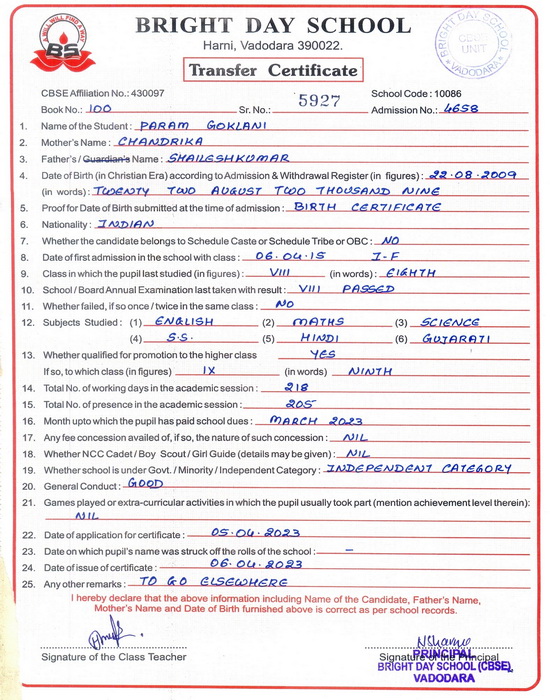 A WILL WILL FIND A WAY
BS
BRIGHT DAY SCHOOL
Harni, Vadodara 390022.
Transfer Certificate
BRIGHT DAY SCHOOL
CBSE
UNIT
VADODARA
CBSE Affiliation No.: 430097 School Code : 10086
Book No.: 100 Sr. No.: 5927 Admission No.: 4658
1. Name of the Student : PARAM GOKLANI
2. Mother's Name : CHANDRIKA
3. Father's / Guardian's Name : SHAILESHKUMAR
4. Date of Birth (in Christian Era) according to Admission & Withdrawal Register (in figures) : 22.08.2009
(in words) : TWENTY TWO AUGUST TWO THOUSAND NINE
5. Proof for Date of Birth submitted at the time of admission : BIRTH CERTIFICATE
6. Nationality : INDIAN
7. Whether the candidate belongs to Schedule Caste or Schedule Tribe or OBC : NO
8. Date of first admission in the school with class : 06.04.15 I-F
9. Class in which the pupil last studied (in figures) : VIII (in words) : EIGHTH
10. School / Board Annual Examination last taken with result : VIII PASSED
11. Whether failed, if so once / twice in the same class : NO
12. Subjects Studied : (1) ENGLISH (2) MATHS (3) SCIENCE
(4) S.S. (5) HINDI (6) GUJARATI
13. Whether qualified for promotion to the higher class YES
If so, to which class (in figures) IX (in words) NINTH
14. Total No. of working days in the academic session : 218
15. Total No. of presence in the academic session : 205
16. Month upto which the pupil has paid school dues : MARCH 2023
17. Any fee concession availed of, if so, the nature of such concession : NIL
18. Whether NCC Cadet / Boy Scout / Girl Guide (details may be given) : NIL
19. Whether school is under Govt. / Minority / Independent Category : INDEPENDENT CATEGORY
20. General Conduct : GOOD
21. Games played or extra-curricular activities in which the pupil usually took part (mention achievement level therein) :
NIL
22. Date of application for certificate : 05.04.2023
23. Date on which pupil's name was struck off the rolls of the school : –
24. Date of issue of certificate : 06.04.2023
25. Any other remarks : TO GO ELSEWHERE
I hereby declare that the above information including Name of the Candidate, Father's Name,
Mother's Name and Date of Birth furnished above is correct as per school records.
Signature of the Class Teacher Signature of the Principal
PRINCIPAL
BRIGHT DAY SCHOOL (CBSE),
VADODARA